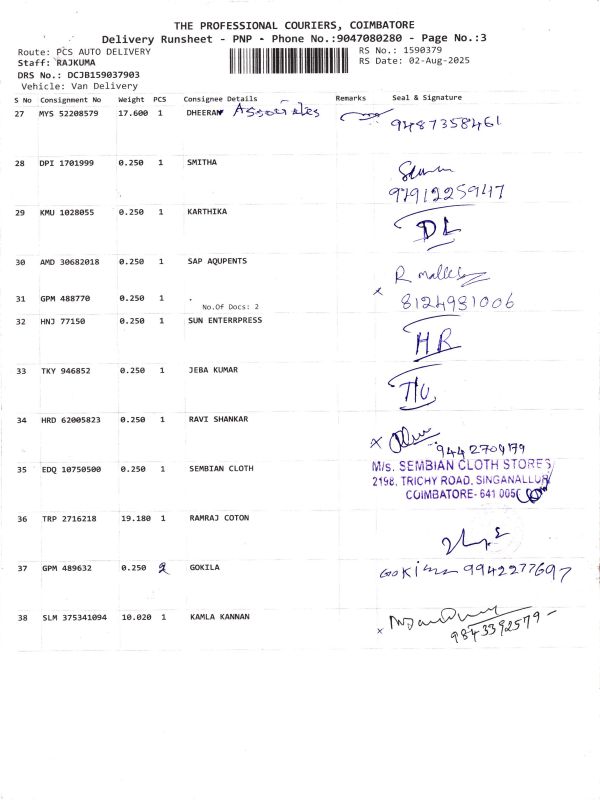 THE PROFESSIONAL COURIERS, COIMBATORE
Delivery Runsheet - PNP - Phone No.:9047080280 - Page No.:3
Route: PCS AUTO DELIVERY RS No.: 1590379
Staff: RAJKUMA RS Date: 02-Aug-2025
DRS No.: DCJB159037903
Vehicle: Van Delivery
S No Consignment No Weight PCS Consignee Details Remarks Seal & Signature
27 MYS 52208579 17.600 1 DHEERAN Associates
9487358461
28 DPI 1701999 0.250 1 SMITHA
29 KMU 1028055 0.250 1 KARTHIKA
DL
30 AMD 30682018 0.250 1 SAP AQUPENTS
R
31 GPM 488770 0.250 1 . x 8124981006
No.Of Docs: 2
32 HNJ 77150 0.250 1 SUN ENTERRPRESS
HR
33 TKY 946852 0.250 1 JEBA KUMAR
34 HRD 62005823 0.250 1 RAVI SHANKAR
x
M/s. SEMBIAN CLOTH STORES
35 EDQ 10750500 0.250 1 SEMBIAN CLOTH
2198, TRICHY ROAD, SINGANALLUR
COIMBATORE- 641 005
36 TRP 2716218 19.180 1 RAMRAJ COTON
37 GPM 489632 0.250 2 GOKILA 9942277697
38 SLM 375341094 10.020 1 KAMLA KANNAN
x 9843392579